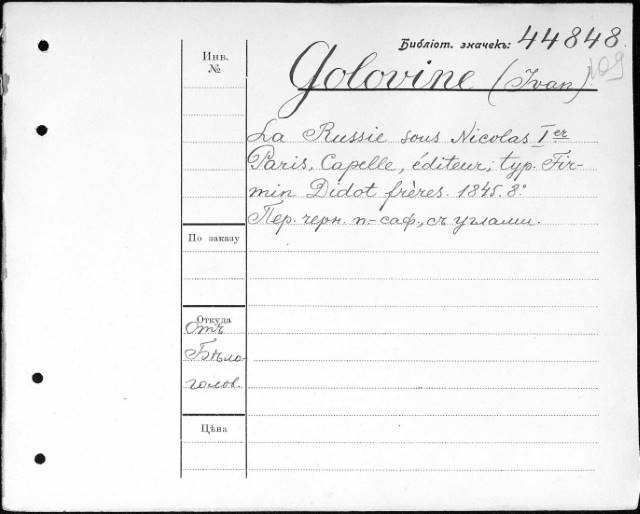 Библіот. значекъ: 44848.
109
Инв.
№
Golovine (Ivan)
La Russie sous Nicolas Ier
Paris, Capelle, éditeur; typ. Fir-
min Didot frères. 1845. 8°
Пер. черн. п-саф., съ углами.
По заказу
Откуда
Отъ
Бѣло-
голов.
Цѣна